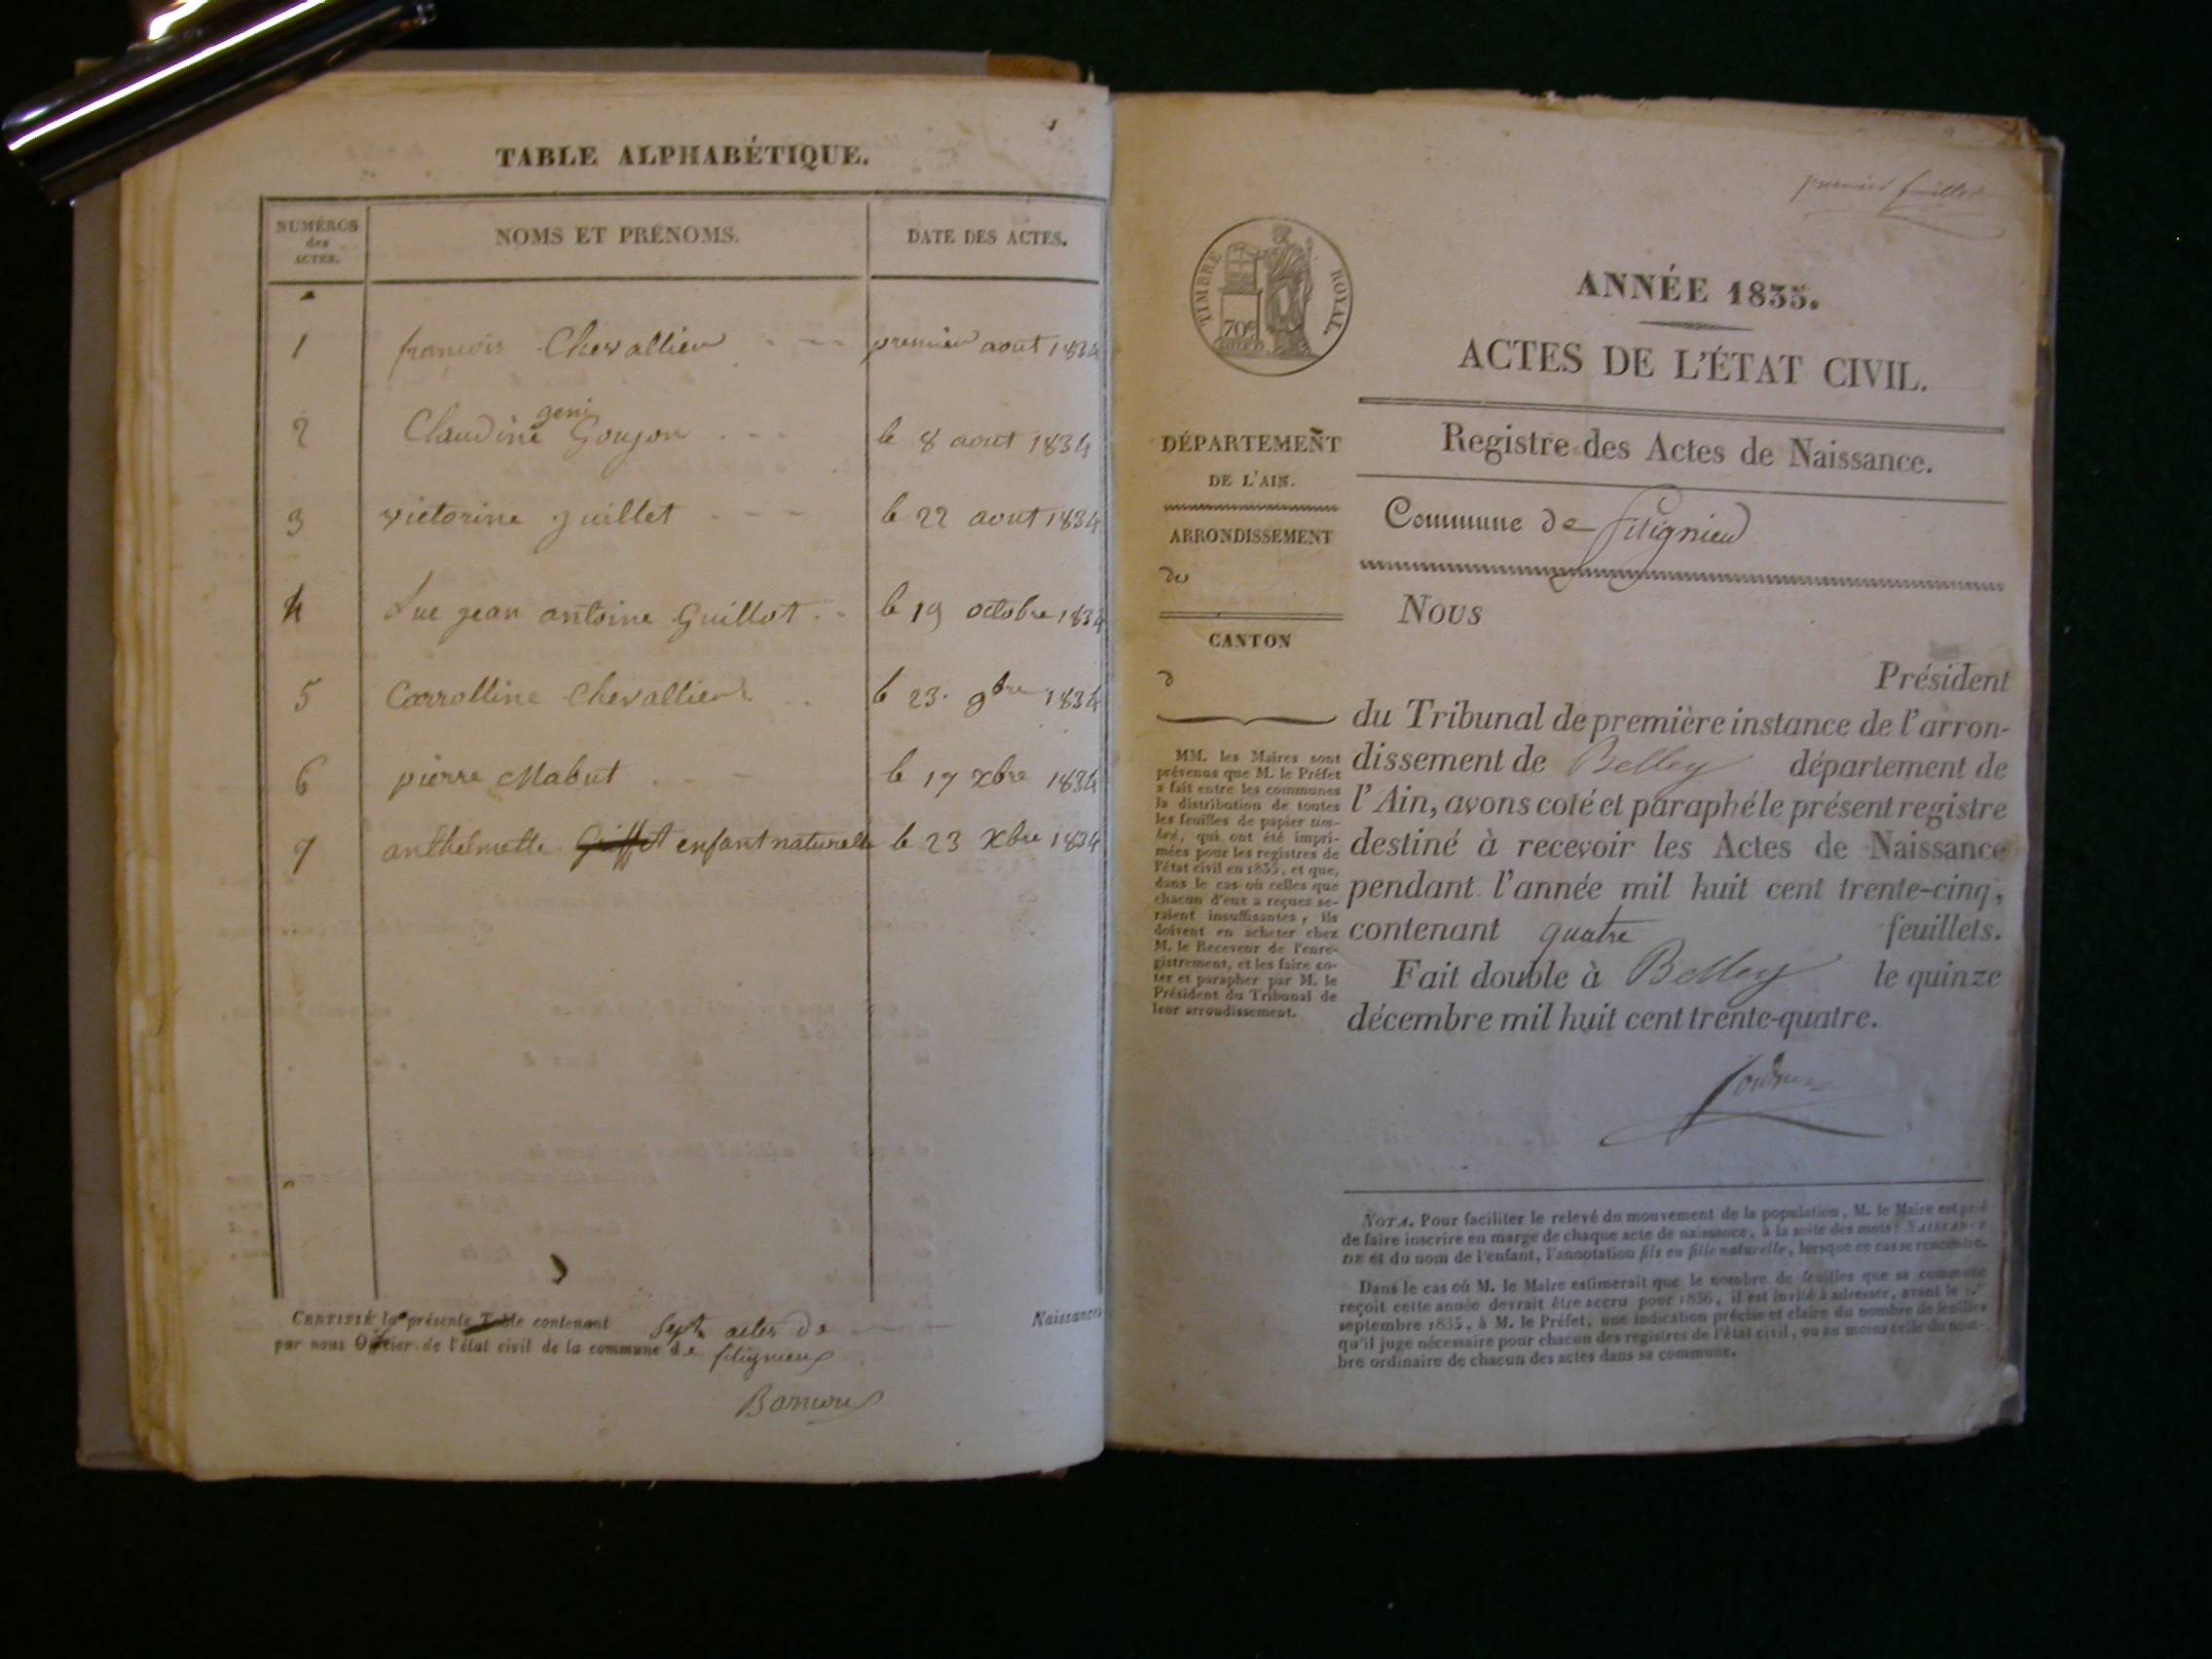 TABLE ALPHABÉTIQUE.
NUMÉROS des ACTES.
NOMS ET PRÉNOMS.
DATE DES ACTES.
1 françois Chevallier premier aout 1834
geni
2 Claudine Goujon le 8 aout 1834
3 victorine guillet le 22 aout 1834
4 Luc jean antoine Guillot le 19 octobre 1834
5 Carrolline Chevallier le 23. 9bre 1834
6 pierre Mabut le 17 xbre 1834
7 anthelmette Griffet enfant naturelle le 23 Xbre 1834
CERTIFIÉ la présente Table contenant Sept actes de Naissances
par nous Officier de l'état civil de la commune de
premier feuillet
TIMBRE ROYAL.
70c
ANNÉE 1835.
ACTES DE L'ÉTAT CIVIL.
Registre des Actes de Naissance.
Commune de
DÉPARTEMENT
DE L'AIN.
ARRONDISSEMENT
de
CANTON
d
MM. les Maires sont
prévenus que M. le Préfet
a fait entre les communes
la distribution de toutes
les feuilles de papier tim-
bré, qui ont été impri-
mées pour les registres de
l'état civil en 1835, et que,
dans le cas où celles que
chacun d'eux a reçues se-
raient insuffisantes, ils
doivent en acheter chez
M. le Receveur de l'enre-
gistrement, et les faire co-
ter et parapher par M. le
Président du Tribunal de
leur arrondissement.
Nous
Président
du Tribunal de première instance de l'arron-
dissement de Belley département de
l'Ain, avons coté et paraphé le présent registre
destiné à recevoir les Actes de Naissance
pendant l'année mil huit cent trente-cinq,
contenant quatre feuillets.
Fait double à Belley le quinze
décembre mil huit cent trente-quatre.
NOTA. Pour faciliter le relevé du mouvement de la population, M. le Maire est prié
de faire inscrire en marge de chaque acte de naissance, à la suite des mots: NAISSANCE
DE et du nom de l'enfant, l'annotation fils ou fille naturelle, lorsque ce cas se rencontre.
Dans le cas où M. le Maire estimerait que le nombre de feuilles que sa commune
reçoit cette année devrait être accru pour 1836, il est invité à adresser, avant le 1.er
septembre 1835, à M. le Préfet, une indication précise et claire du nombre de feuilles
qu'il juge nécessaire pour chacun des registres de l'état civil, ou au moins celle du nom-
bre ordinaire de chacun des actes dans sa commune.